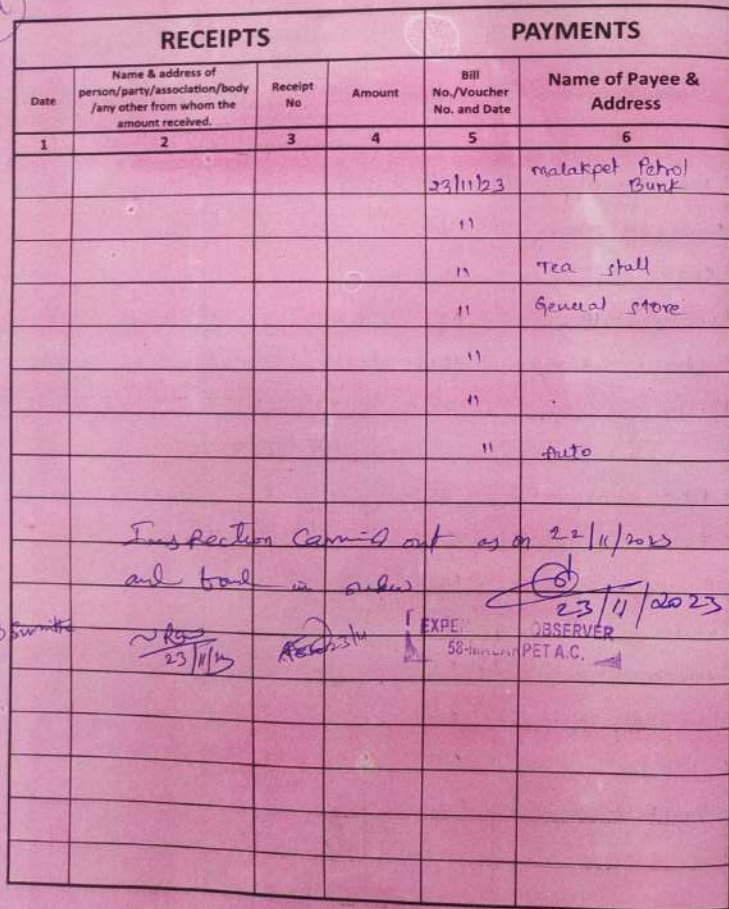 RECEIPTS
PAYMENTS
Date
Name & address of
person/party/association/body
/any other from whom the
amount received.
Receipt
No
Amount
Bill
No./Voucher
No. and Date
Name of Payee &
Address
1 2 3 4 5 6
23/11/23 malakpet Petrol
Bunk
"
" Tea stall
" General store
"
" .
" Auto
Inspection Carried out as on 22/11/2023
and found in order
23/11/2023
EXPE OBSERVER
58- PET A.C.
23/11/23
23/11